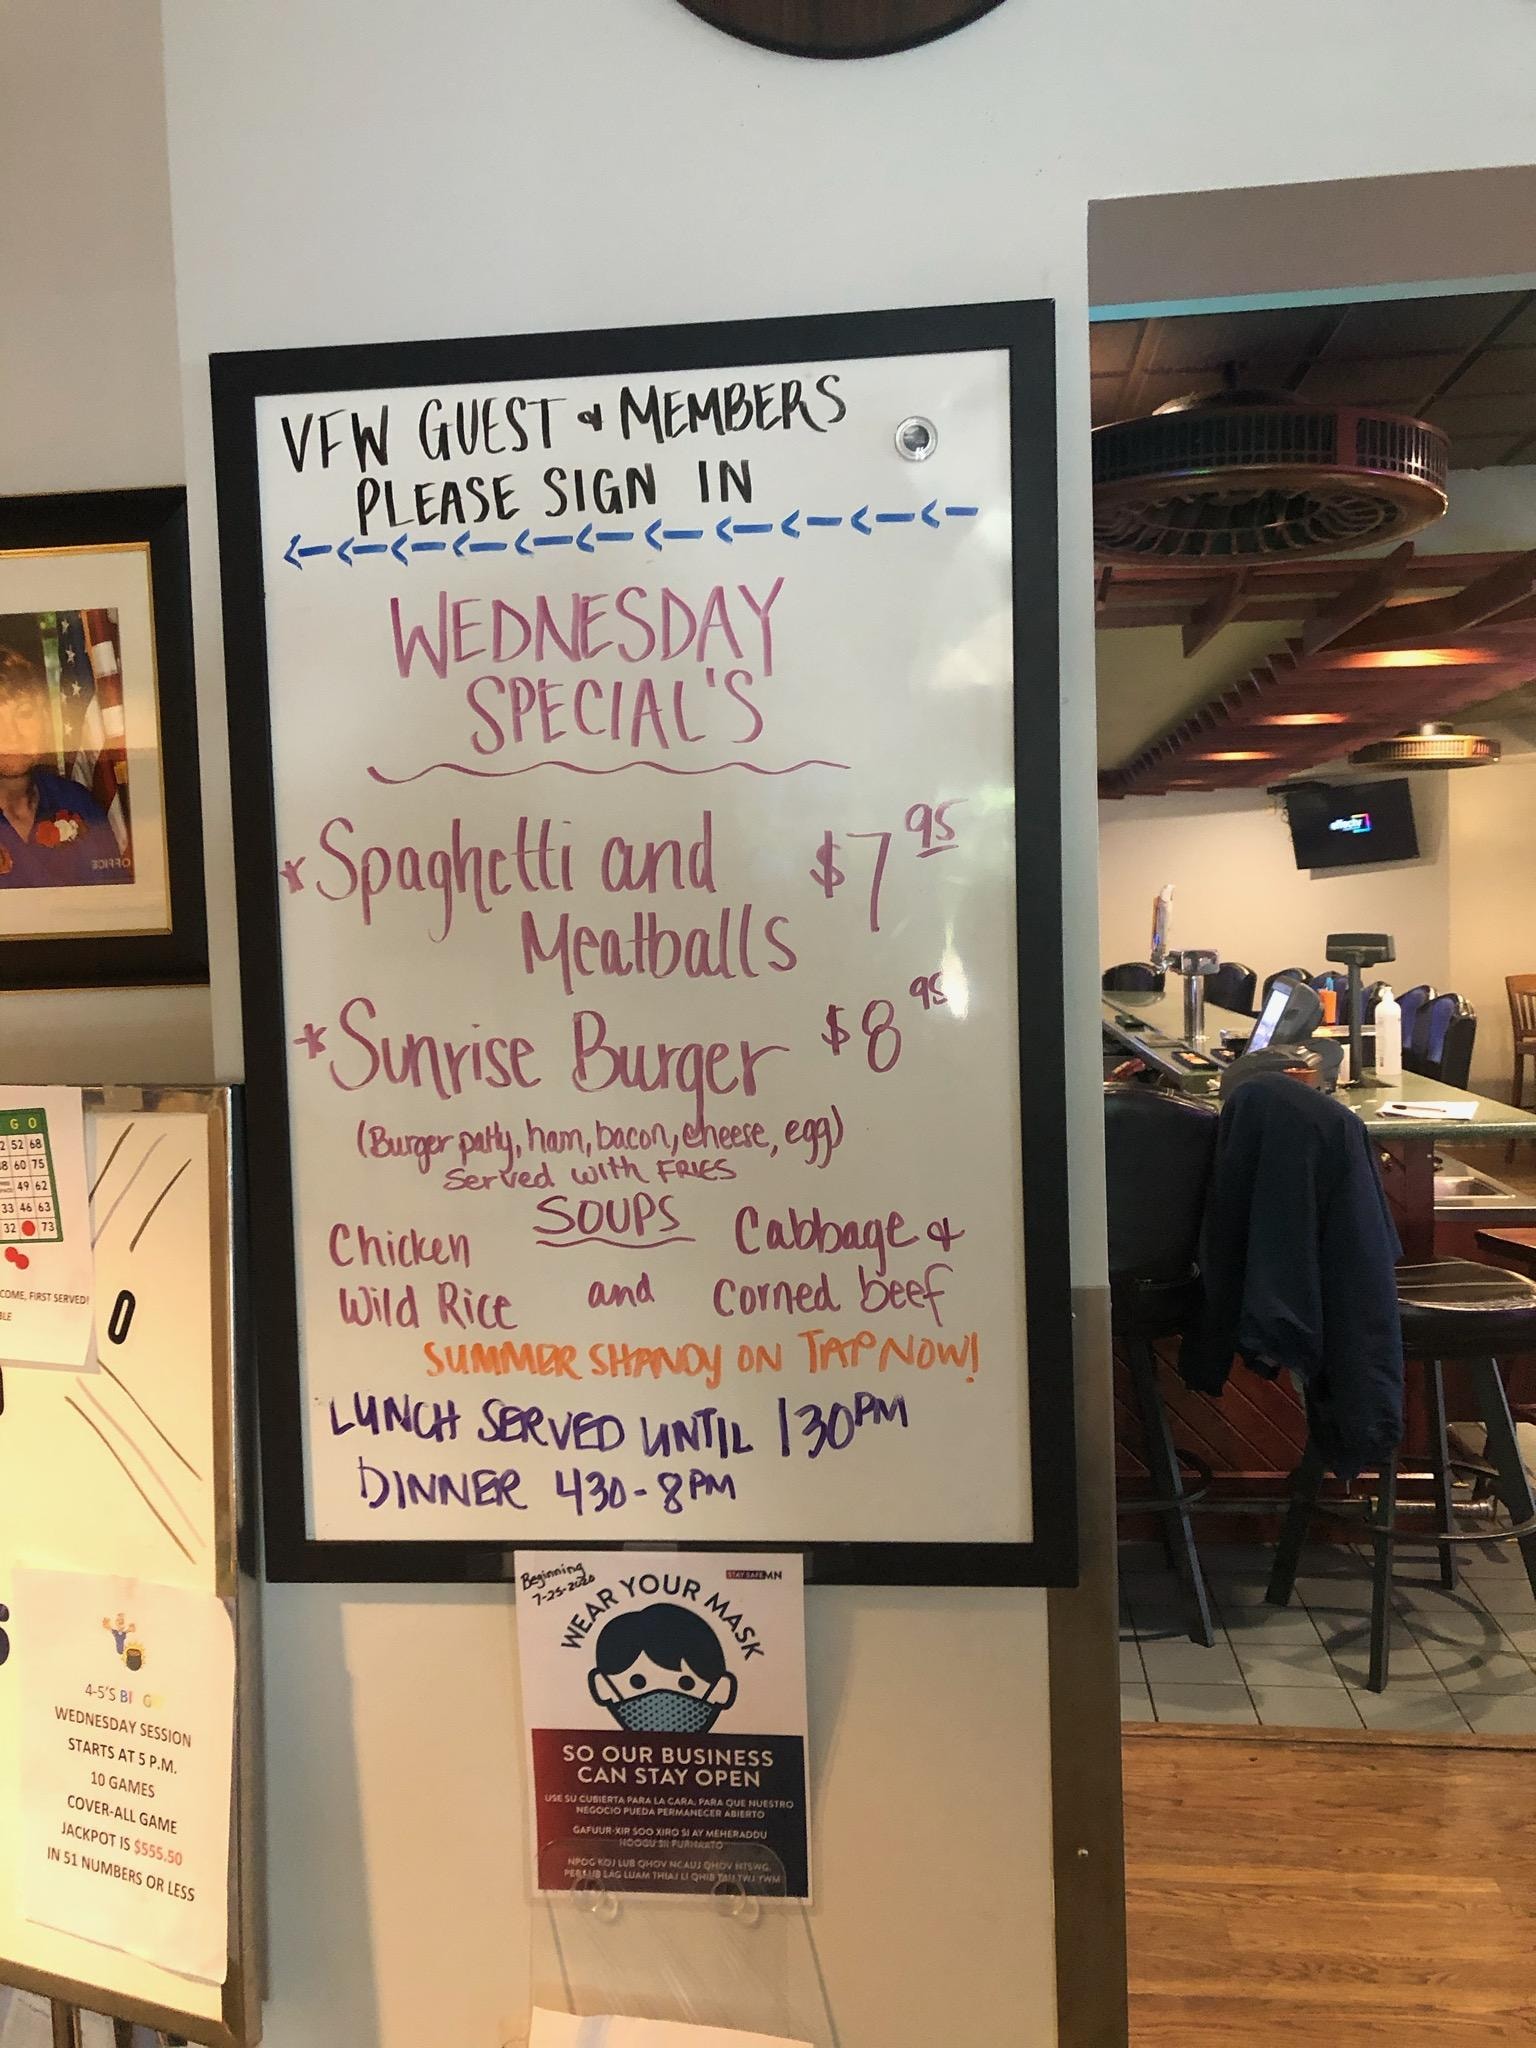 VFW GUEST & MEMBERS
PLEASE SIGN IN
WEDNESDAY
SPECIAL'S
*Spaghetti and $7 95
Meatballs
*Sunrise Burger $8 95
(Burger patty, ham, bacon, cheese, egg)
Served with FRIES
SOUPS
Chicken Cabbage &
Wild Rice and Corned beef
SUMMER SHANDY ON TAP NOW!
LUNCH SERVED UNTIL 130PM
DINNER 430-8PM
Beginning
7-25-2020
STAY SAFE MN
WEAR YOUR MASK
SO OUR BUSINESS
CAN STAY OPEN
USE SU CUBIERTA PARA LA CARA, PARA QUE NUESTRO
NEGOCIO PUEDA PERMANECER ABIERTO
GAFUUR-XIR SOO XIRO SI AY MEHERADDU
HOOGU SII FURNAATO
NPOG KOJ LUB QHOV NCAUJ QHOV NTSWG,
PEB LUB LAG LUAM THIAJ LI QHIB TAU TWJ YWM
OFFICE
G O
2 52 68
8 60 75
49 62
33 46 63
32 73
COME, FIRST SERVED!
BLE
O
4-5'S BI G
WEDNESDAY SESSION
STARTS AT 5 P.M.
10 GAMES
COVER-ALL GAME
JACKPOT IS $555.50
IN 51 NUMBERS OR LESS